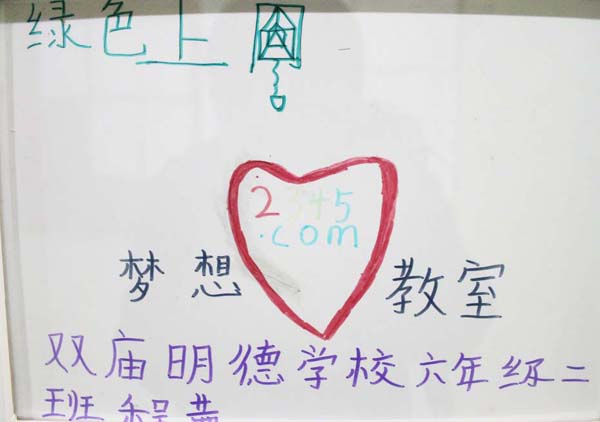 绿色上
2345
.com
梦想 教室
双庙明德学校六年级二
班程